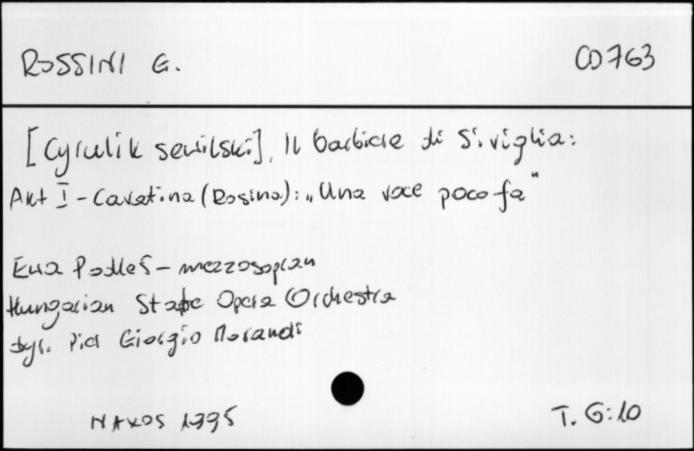 ROSSINI G. CD763
[Cyrulik sewilski], Il barbiere di Siviglia:
Akt I - Cavatina (Rosina): „Una voce poco fa"
Ewa Podleś - mezzosopran
Hungarian State Opera Orchestra
dyr. Pier Giorgio Morandi
NAXOS 1995 T. 6:10